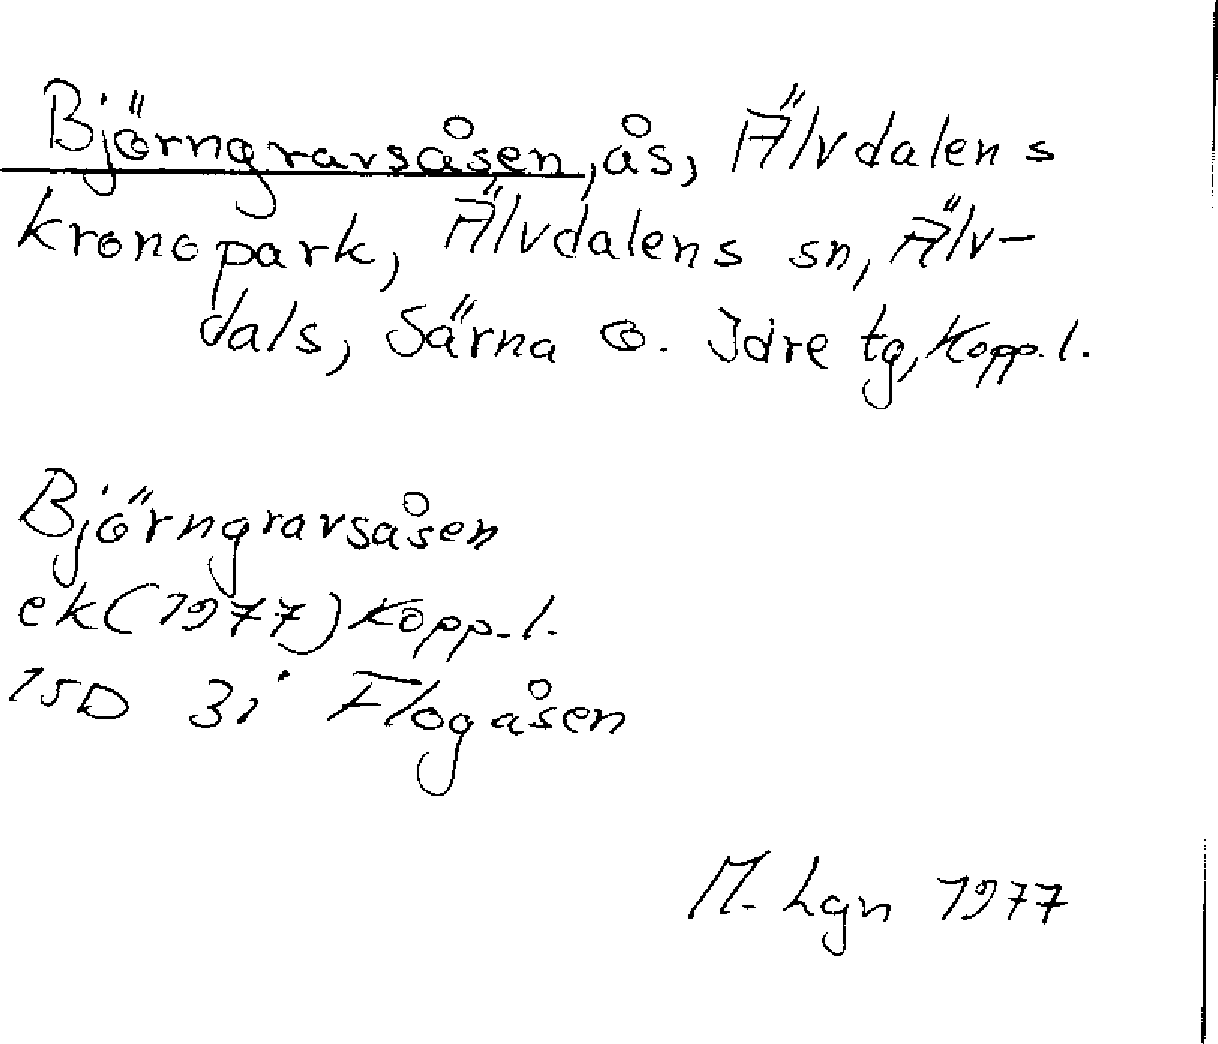 Björngravsåsen, ås, Älvdalens
kronopark, Älvdalens sn, Älv-
dals, Särna o. Idre tg, Kopp. l.
Björngravsåsen
ek (1977) Kopp. l.
15D 3i Flogåsen
M. Lgn 1977